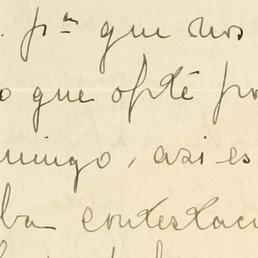 . pᵃ que nos
o que opté po
mingo, asi es
ba contestaci